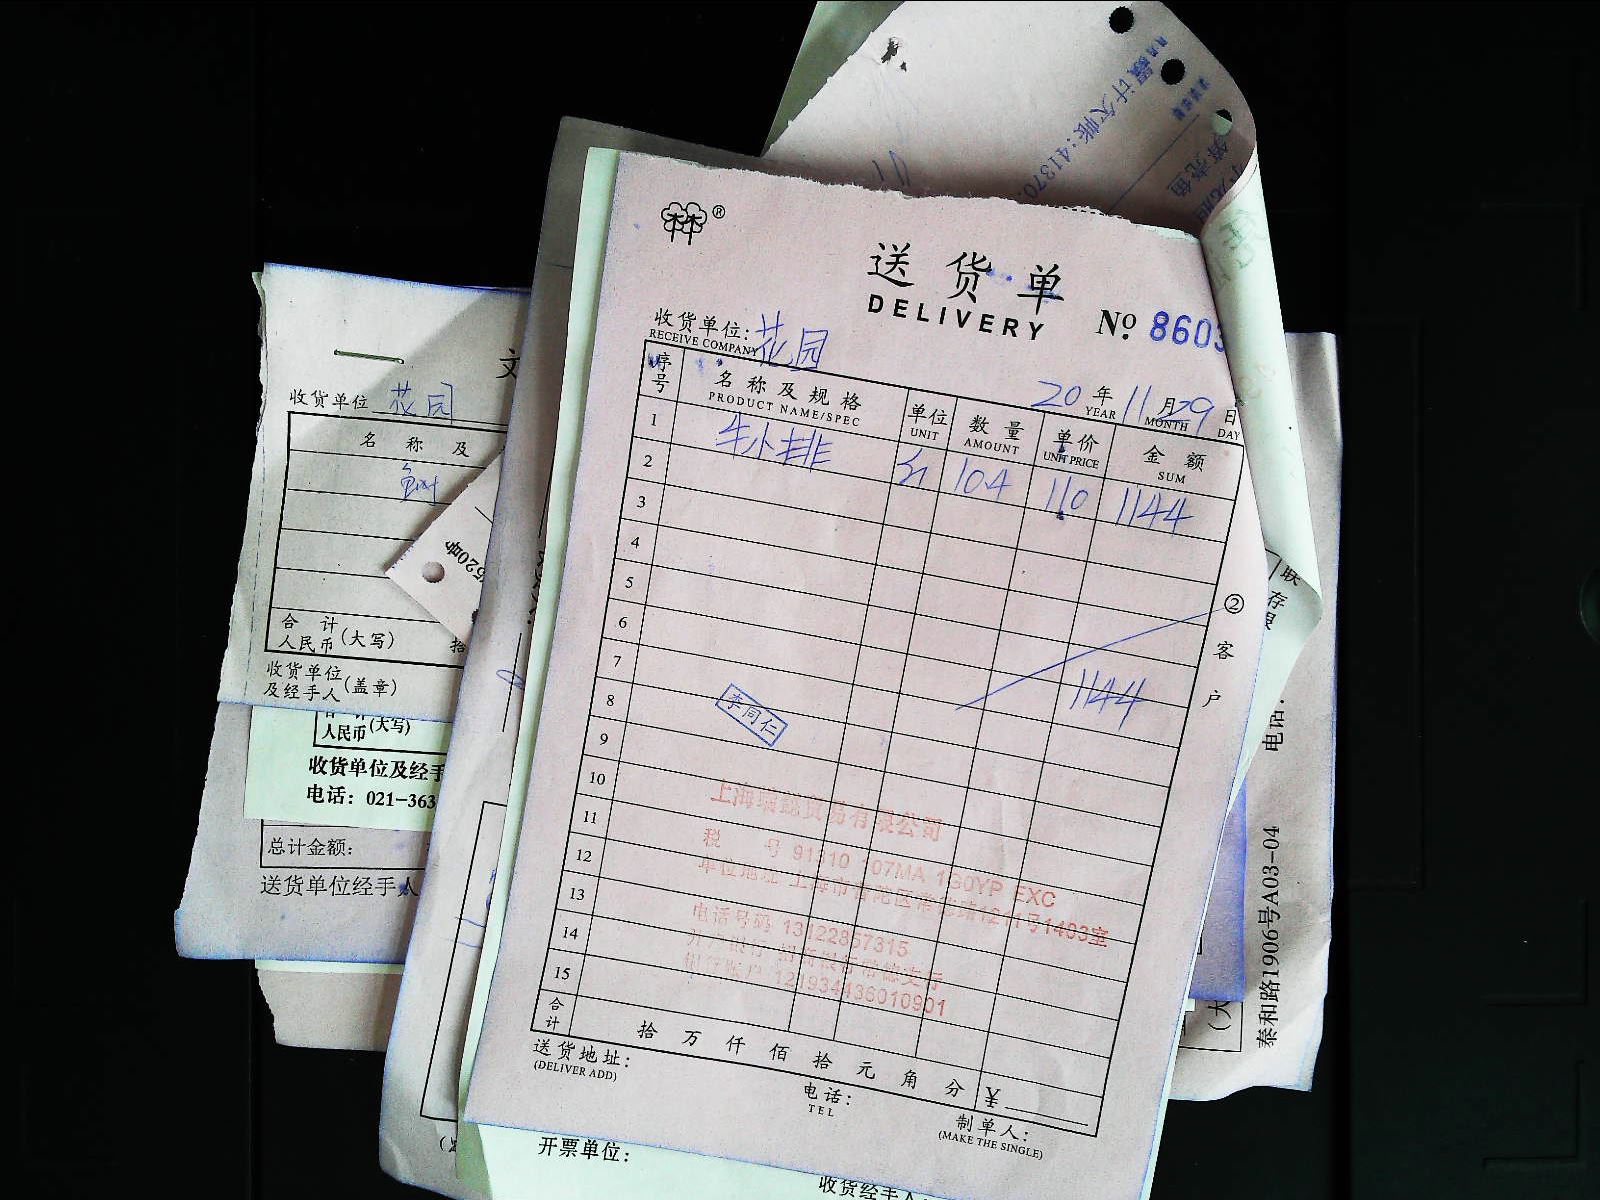 送货单
DELIVERY
No. 8603
收货单位: 花园
RECEIVE COMPANY
20 年 11 月 29 日
YEAR MONTH DAY
序号 名称及规格 单位 数量 单价 金额
PRODUCT NAME/SPEC UNIT AMOUNT UNIT PRICE SUM
1 牛小排 10.4 110 1144
2
3
4
5
6
7
1144
8
9
10
11
12
13
14
15
合计 拾 万 仟 佰 拾 元 角 分 ¥
②客户
李同仁
有限公司
税号 91310 107MA 1G0YP EXC
单位地址 上海市普陀区 1211号1403室
电话号码 13122857315
银行账户 121934436010901
送货地址:
(DELIVER ADD)
电话:
TEL
制单人:
(MAKE THE SINGLE)
开票单位:
收货经手人
收货单位 花园
名 称 及
合 计
人民币(大写) 拾
收货单位
及经手人(盖章)
人民币(大写)
收货单位及经手
电话: 021-363
总计金额:
送货单位经手人
520号
累计欠帐:41370.
联
存
电话:
泰和路1906号A03-04